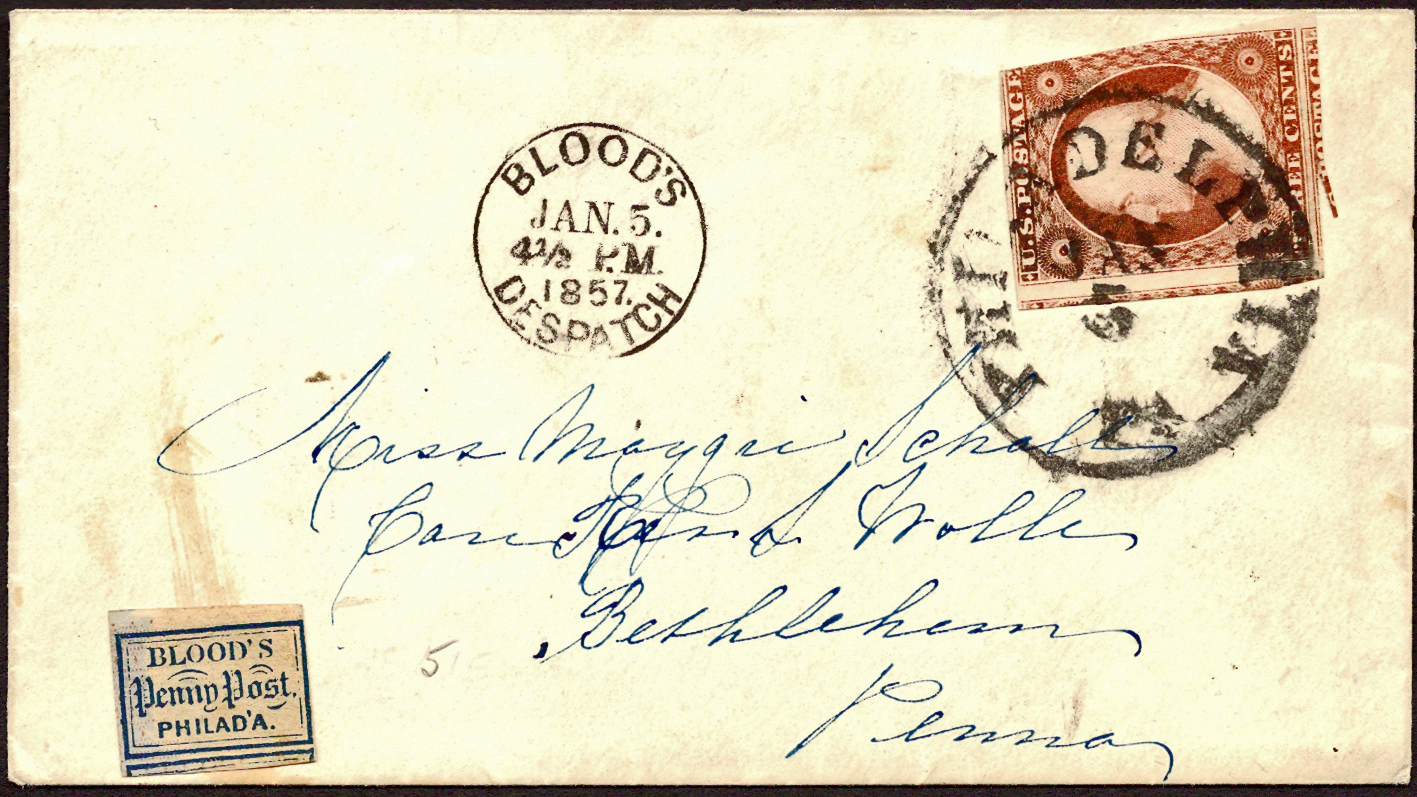 BLOOD'S
JAN. 5.
4½ P.M.
1857.
DESPATCH
U.S. POSTAGE
THREE CENTS
PHILADELPHIA
JAN
5
Pa
Miss Maggie Scholl
Care
S Wolle
Bethlehem
Penna
5
BLOOD'S
Penny Post.
PHILAD'A.